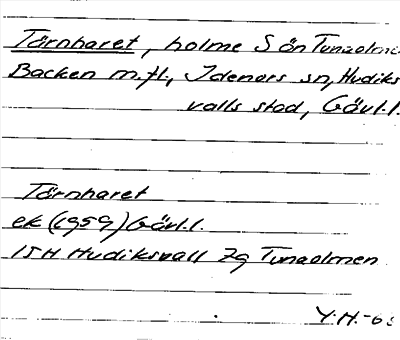 Tärnharet, holme S ön Tunaolmen
Backen m.fl., Idenors sn, Hudiks
valls stad, Gävl.l.
Tärnharet
ek (1959) Gävl.l.
15H Hudiksvall 7g Tunaolmen
Y.H.-6